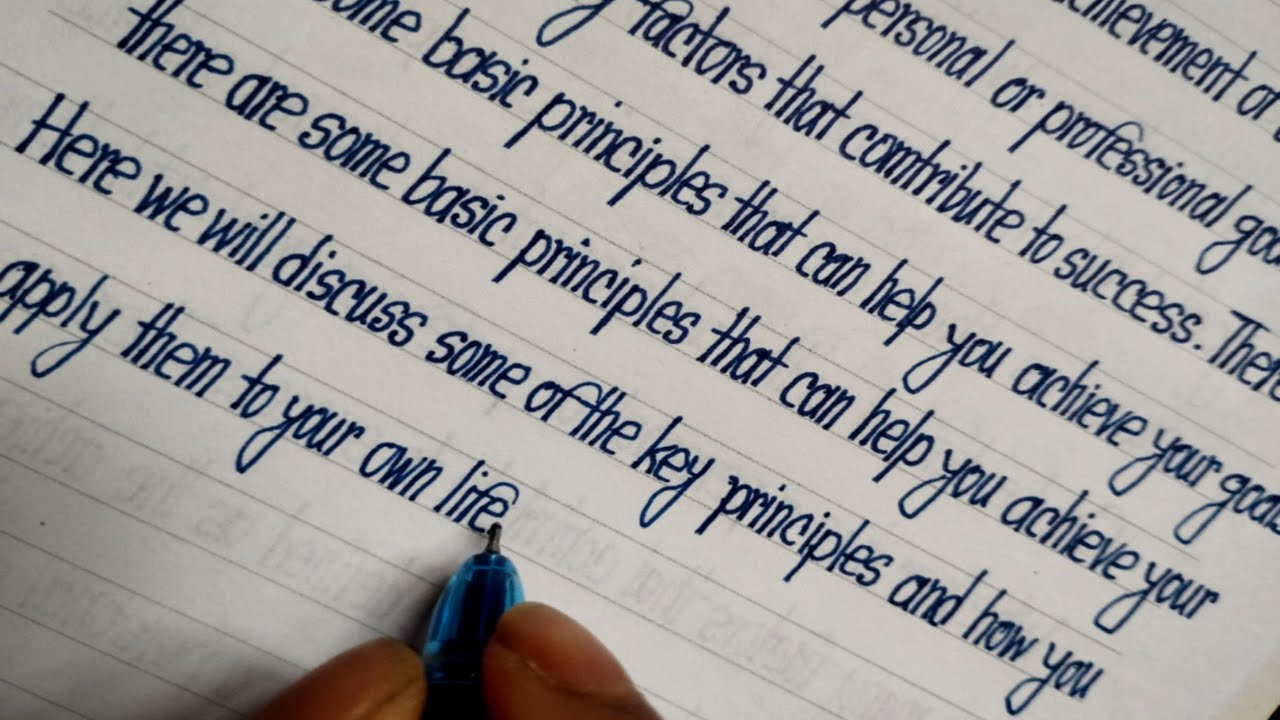 achievement of
personal or professional goa
factors that comtribute to success. There
some basic principles that can help you achieve your goals
there are some basic principles that can help you achieve your
Here we will discuss some of the key principles and how you
apply them to your own life